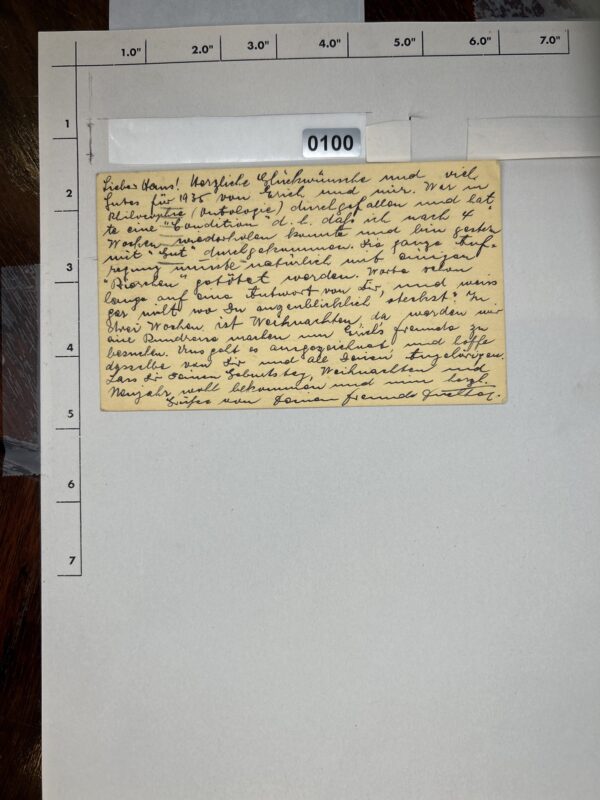 1.0" 2.0" 3.0" 4.0" 5.0" 6.0" 7.0"
1
0100
2
3
4
5
6
7
Lieber Hans! Herzliche Glückwünsche und viel
Gutes für 1936 von Erich und mir. War in
Philosophie (Ontologie) durchgefallen und hat-
te eine "Condition" d. h. dass ich nach 4
Wochen wiederholen konnte und bin gestern
mit "Gut" durchgekommen. Die ganze Auf-
regung musste natürlich mit einigen
"Bierchen" getötet werden. Warte schon
lange auf eine Antwort von Dir, und weiss
gar nicht wo Du augenblicklich "steckst". In
drei Wochen ist Weihnachten, da werden wir
eine Rundreise machen um Erich's Freunde zu
besuchen. Uns geht es ausgezeichnet und hoffe
dasselbe von Dir und all Deinen Angehörigen.
Lass Dir Deinen Geburtstag, Weihnachten und
Neujahr wohl bekommen und nun herzl.
Grüße von Deinem Freunde